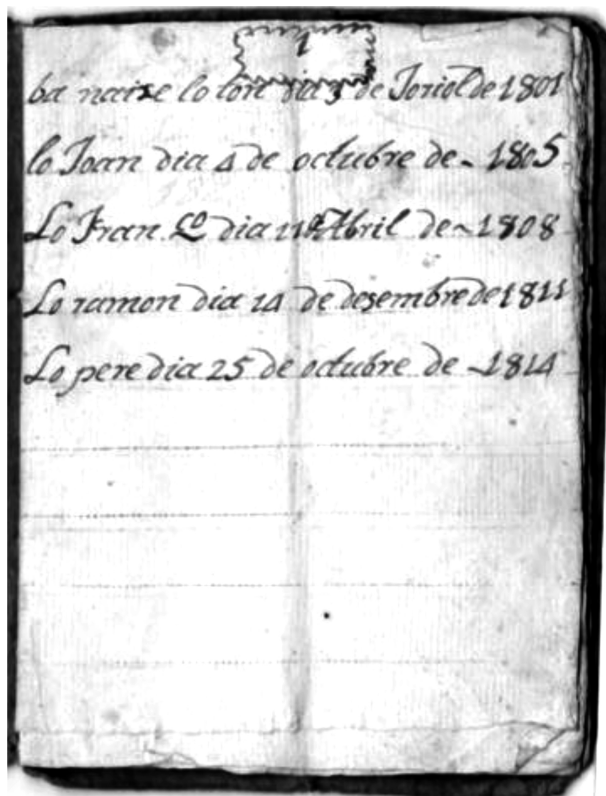 1
ba naixe lo ton dia 3 de Joriol de 1801
lo Joan dia 4 de octubre de 1805
Lo Fran.co dia 11 de Abril de 1808
Lo ramon dia 14 de desembre de 1811
Lo pere dia 25 de octubre de 1814